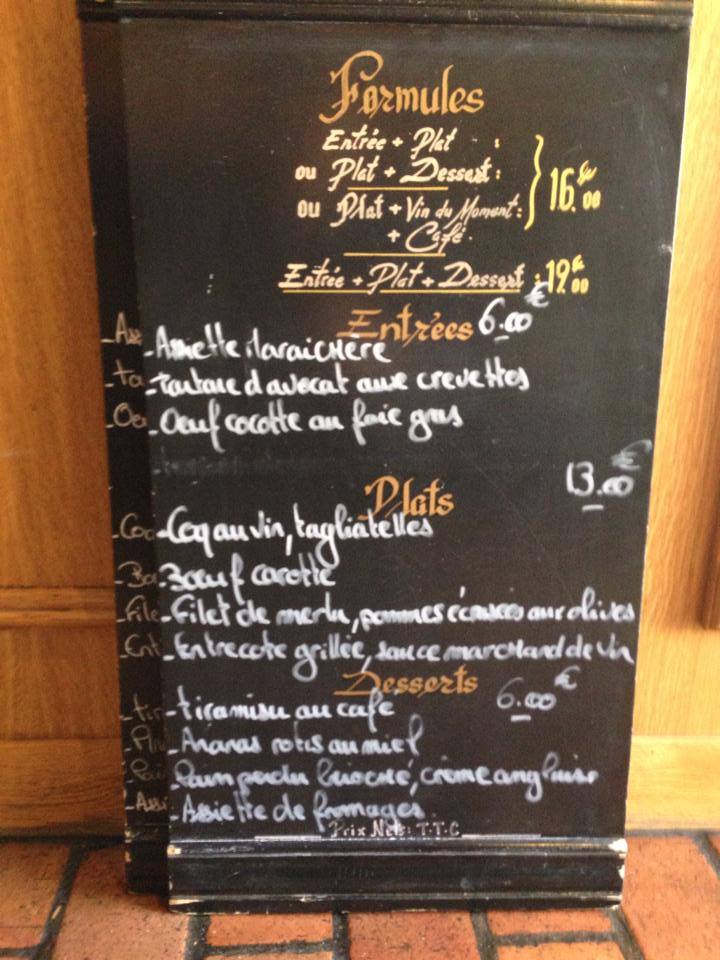 Formules
Entrée + Plat :
ou Plat + Dessert :
ou Plat + Vin du Moment :
+ Café.
16.€00
Entrée + Plat + Dessert : 19.€00
Entrées 6.00€
- Assiette Maraichère
- Tartare d'avocat aux crevettes
- Oeuf cocotte au foie gras
13.00€
Plats
- Coq au vin, tagliatelles
- Bœuf carotte
- Filet de merlu, pommes écrasées aux olives
- Entrecote grillée, sauce marchand de vin
Desserts 6.00€
- tiramisu au cafe
- Ananas rotis au miel
- Pain perdu brioché, crème anglaise
- Assiette de fromages
Prix Nets : T.T.C